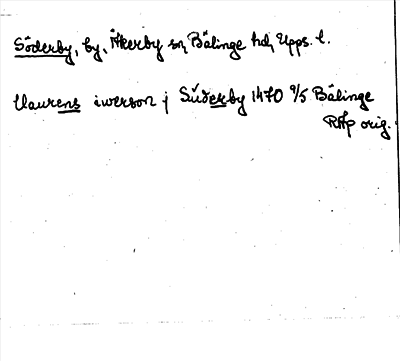 Söderby, by, Åkerby sn, Bälinge hd, Upps. l.
laurens iwerson j Suderby 1470 9/5 Bälinge
RAp orig.